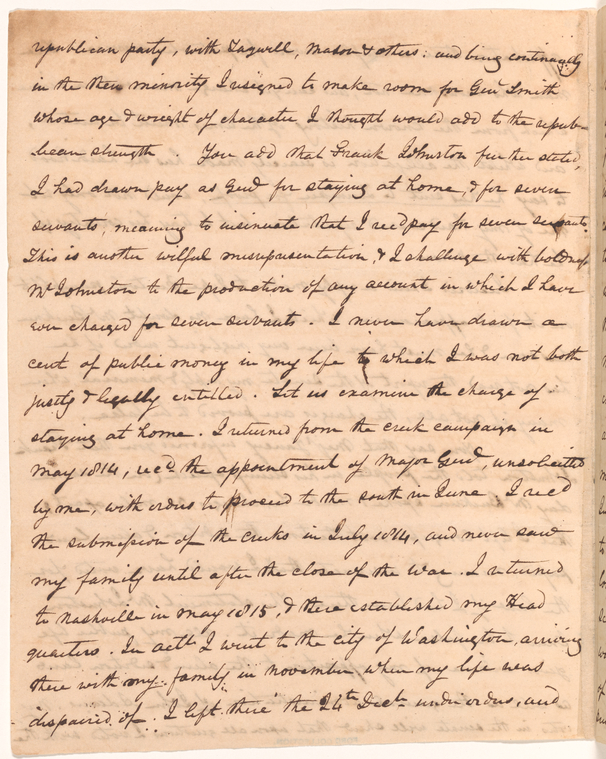 republican party, with Tazwell, Mason & others: and being continually
in the then minority I resigned to make room for Genl Smith
whose age & weight of character I thought would add to the repub-
lican strength. You add that Frank Johnston further stated,
I had drawn pay as Genl for staying at home, & for seven
servants, meaning to insinuate that I recd pay for seven servants.
This is another wilful misrepresentation, & I challenge with boldness
Mr Johnston to the production of any account in which I have
ever charged for seven servants. I never have drawn a
cent of public money in my life to which I was not both
justly & legally entitled. Let us examine the charge of
staying at home. I returned from the creek campaign in
May 1814, recd the appointment of Major Genl, unsolicited
by me, with orders to proceed to the south in June; I recd
the submission of the creeks in July 1814, and never saw
my family until after the close of the war. I returned
to Nashville in may 1815, & there established my Head
quarters. In octr I went to the city of Washington, arriving
there with my family in november when my life was
dispaired of. I left there the 24th Decr under orders, and